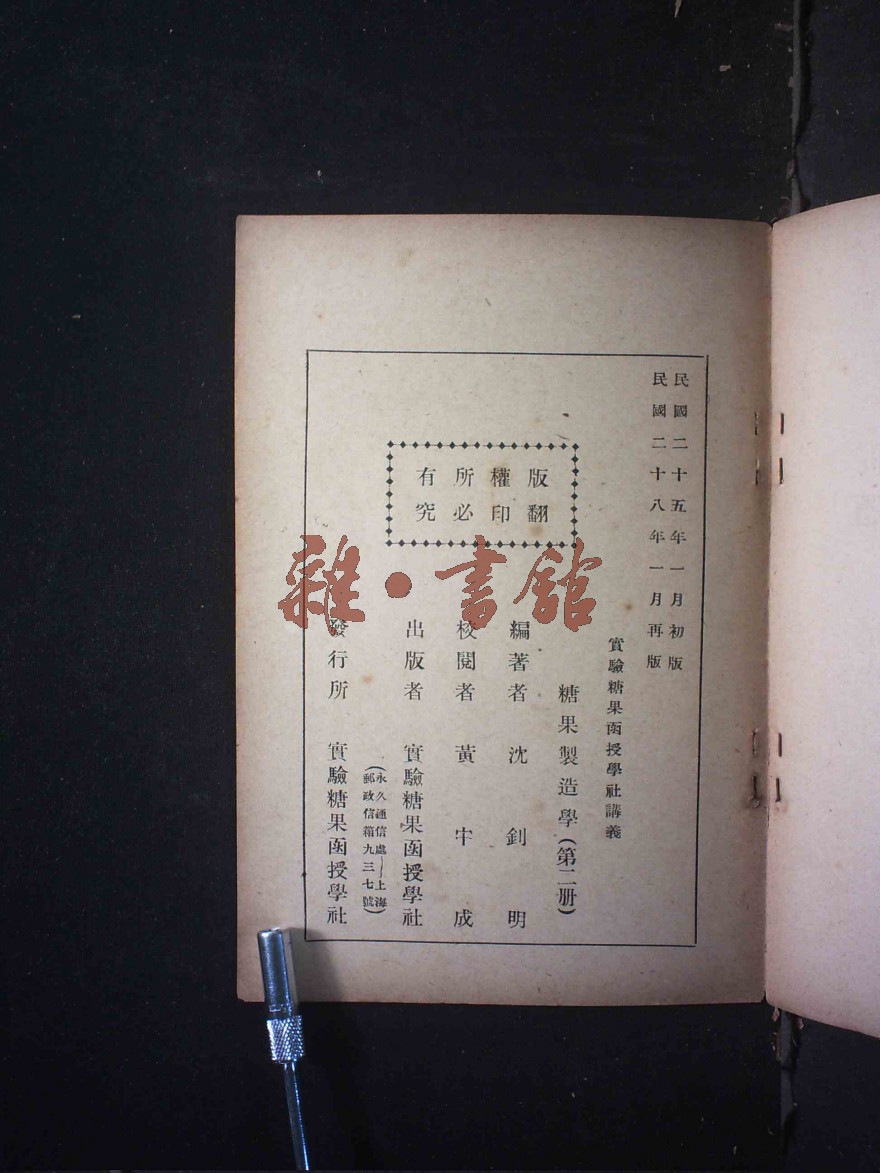 民國二十五年一月初版
民國二十八年一月再版
實驗糖果函授學社講義
糖果製造學(第二册)
版權所有
翻印必究
編著者 沈釗明
校閱者 黃㐄成
出版者 實驗糖果函授學社
(永久通信處——上海
郵政信箱九三七號)
發行所 實驗糖果函授學社
雜·書館